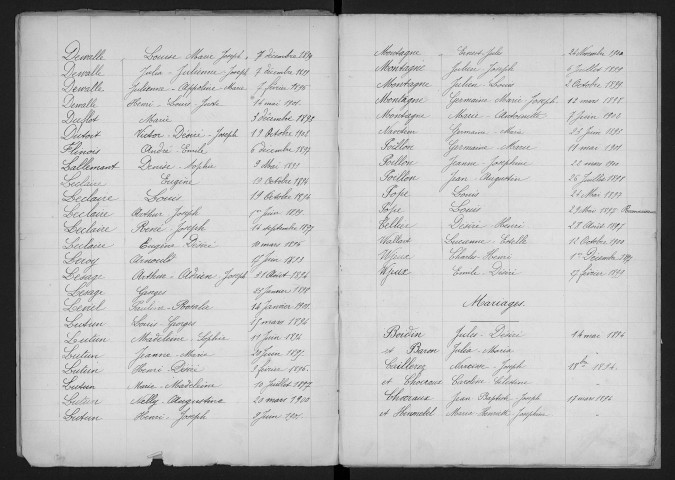 Dewalle Louise Marie Joseph 7 décembre
Dewalle Julia - Julienne - Joseph 7 décembre 1891
Dewalle Julienne - Appoline - Marie 7 février 1896
Dewalle Henri - Louis - Jude 14 mai 1901
Duflot Marie 3 décembre 1892
Dutoit Victor - Désiré - Joseph 13 Octobre 1902
Flinois André - Emile 6 décembre 1897
Lallemant Denise - Sophie 3 Mai 1899
Leclaire Eugène 19 Octobre 1894
Leclaire Louis 19 Octobre 1894
Leclaire Arthur Joseph 1er Juin 1891
Leclaire René Joseph 14 septembre 1897
Leclaire Eugène Désiré mars 1896
Leroy Arnould 17 Juin
Lesage Arthur - Adrien Joseph Août 1894
Lesage Georges Janvier 1898
Pauline - Rosalie 14 Janvier 1901
Lutun Louis - Georges 17 mars 1894
Lutun Madeleine - Sophie 11 Juin 1896
Lutun Jeanne - Marie 20 Juin 1897
Lutun Henri - Désiré février 1896
Lutun Marie - Madeleine 10 Juillet 1897
Lutun Nelly - Augustine 20 mars 1900
Lutun Henri - Joseph 2 Juin
Montagne Ernest - Jules 22 Novembre 1900
Montagne Julien - Joseph 6 Juillet 1899
Montagne Julien - Louis 2 Octobre 1899
Montagne Germaine - Marie - Joseph 12 mars 1898
Montagne Marie - Antoinette 7 Juin 1900
Germaine - Marie 26 Juin 1898
Poillon Germaine - Marie 11 mai 1901
Poillon Jeanne - Joséphine 20 mars 1900
Poillon Jean - Augustin 26 Juillet 1898
Pope Louis 24 Mai 1897
Pope Louis 29 Mai 1897
Tellier Désiré Henri 25 Août 1897
Wallart Suzanne - Estelle 12 Octobre 1900
Charles - Henri 1er Décembre
Emile - Désiré 17 février 1899
Mariages.
Bordin Jules - Désiré 14 mai 1894
et Baron Julia - Maria
Caillerez Narcisse - Joseph 1894
et Choeraux Caroline Célestine
Choeraux Jean Baptiste Joseph 17 mars 1894
et Hennebel Marie Henriette Joséphine